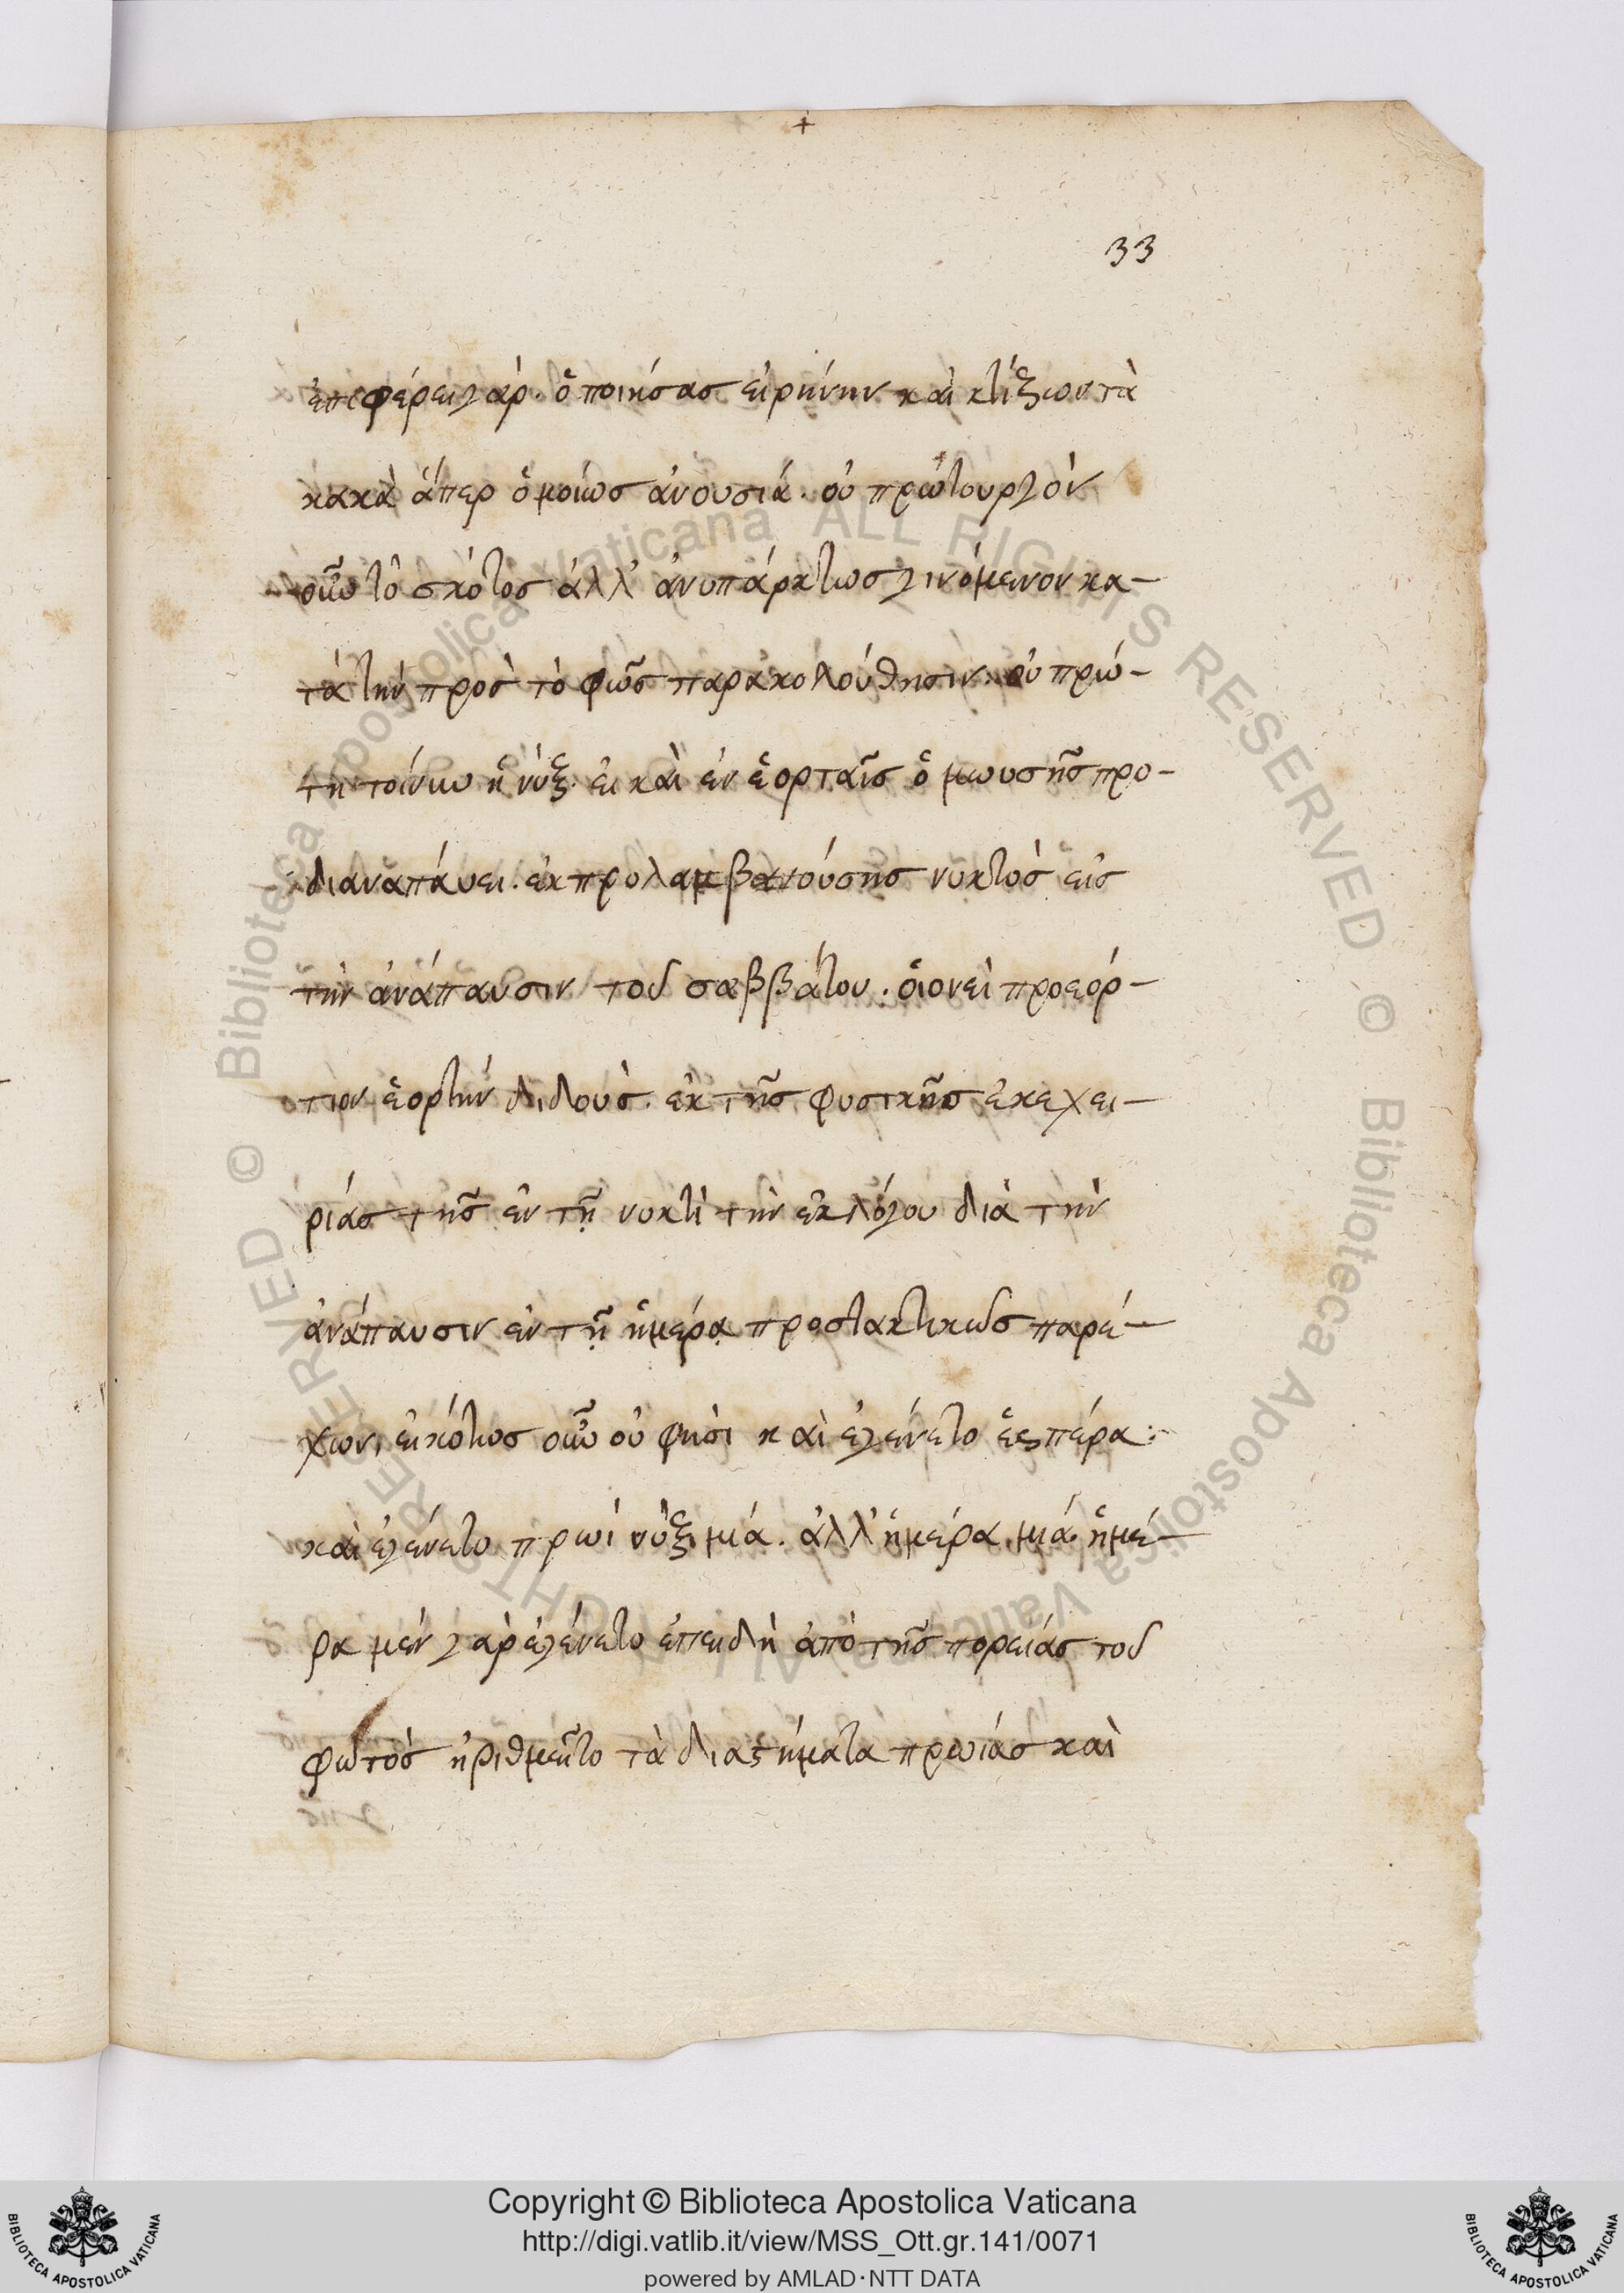 +
33
ἐπιφέρει γὰρ. ὁ ποιήσας εἰρήνην καὶ κτίζων τὰ
κακὰ ἅπερ ὁμοίως ἀνουσιά. οὐ πρωτουργὸν
οὖν τὸ σκότος ἀλλ' ἀνυπάρκτως γινόμενον κα-
τὰ τὴν πρὸς τὸ φῶς παρακολούθησιν. οὐ πρώ-
τη τοίνυν ἡ νύξ. εἰ καὶ ἐν ἑορταῖς ὁ μωυσῆς προ-
διαναπάυει. ἐκ προλαμβανούσης νυκτὸς εἰς
τὴν ἀνάπαυσιν τοῦ σαββάτου. οἱονεὶ προεόρ-
τιον ἑορτὴν διδοὺς. ἐκ τῆς φυσικῆς ἐκεχει-
ρίας τῆς ἐν τῇ νυκτὶ τὴν ἐκ λόγου διὰ τὴν
ἀνάπαυσιν ἐν τῇ ἡμέρᾳ προστακτικῶς παρέ-
χων, εἰκότως οὖν οὐ φησὶ καὶ ἐγένετο ἑσπέρα.
καὶ ἐγένετο πρωὶ νὺξ μιά. ἀλλ' ἡμέρα μιά. ἡμέ-
ρα μὲν γὰρ ἐγένετο ἐπειδὴ ἀπὸ τῆς πορείας τοῦ
φωτὸς ἠριθμεῖτο τὰ διαστήματα πρωίας καὶ
Copyright © Biblioteca Apostolica Vaticana
http://digi.vatlib.it/view/MSS_Ott.gr.141/0071
powered by AMLAD·NTT DATA
BIBLIOTECA APOSTOLICA VATICANA
BIBLIOTECA APOSTOLICA VATICANA
© Biblioteca Apostolica Vaticana ALL RIGHTS RESERVED © Biblioteca Apostolica Vaticana ALL RIGHTS RESERVED